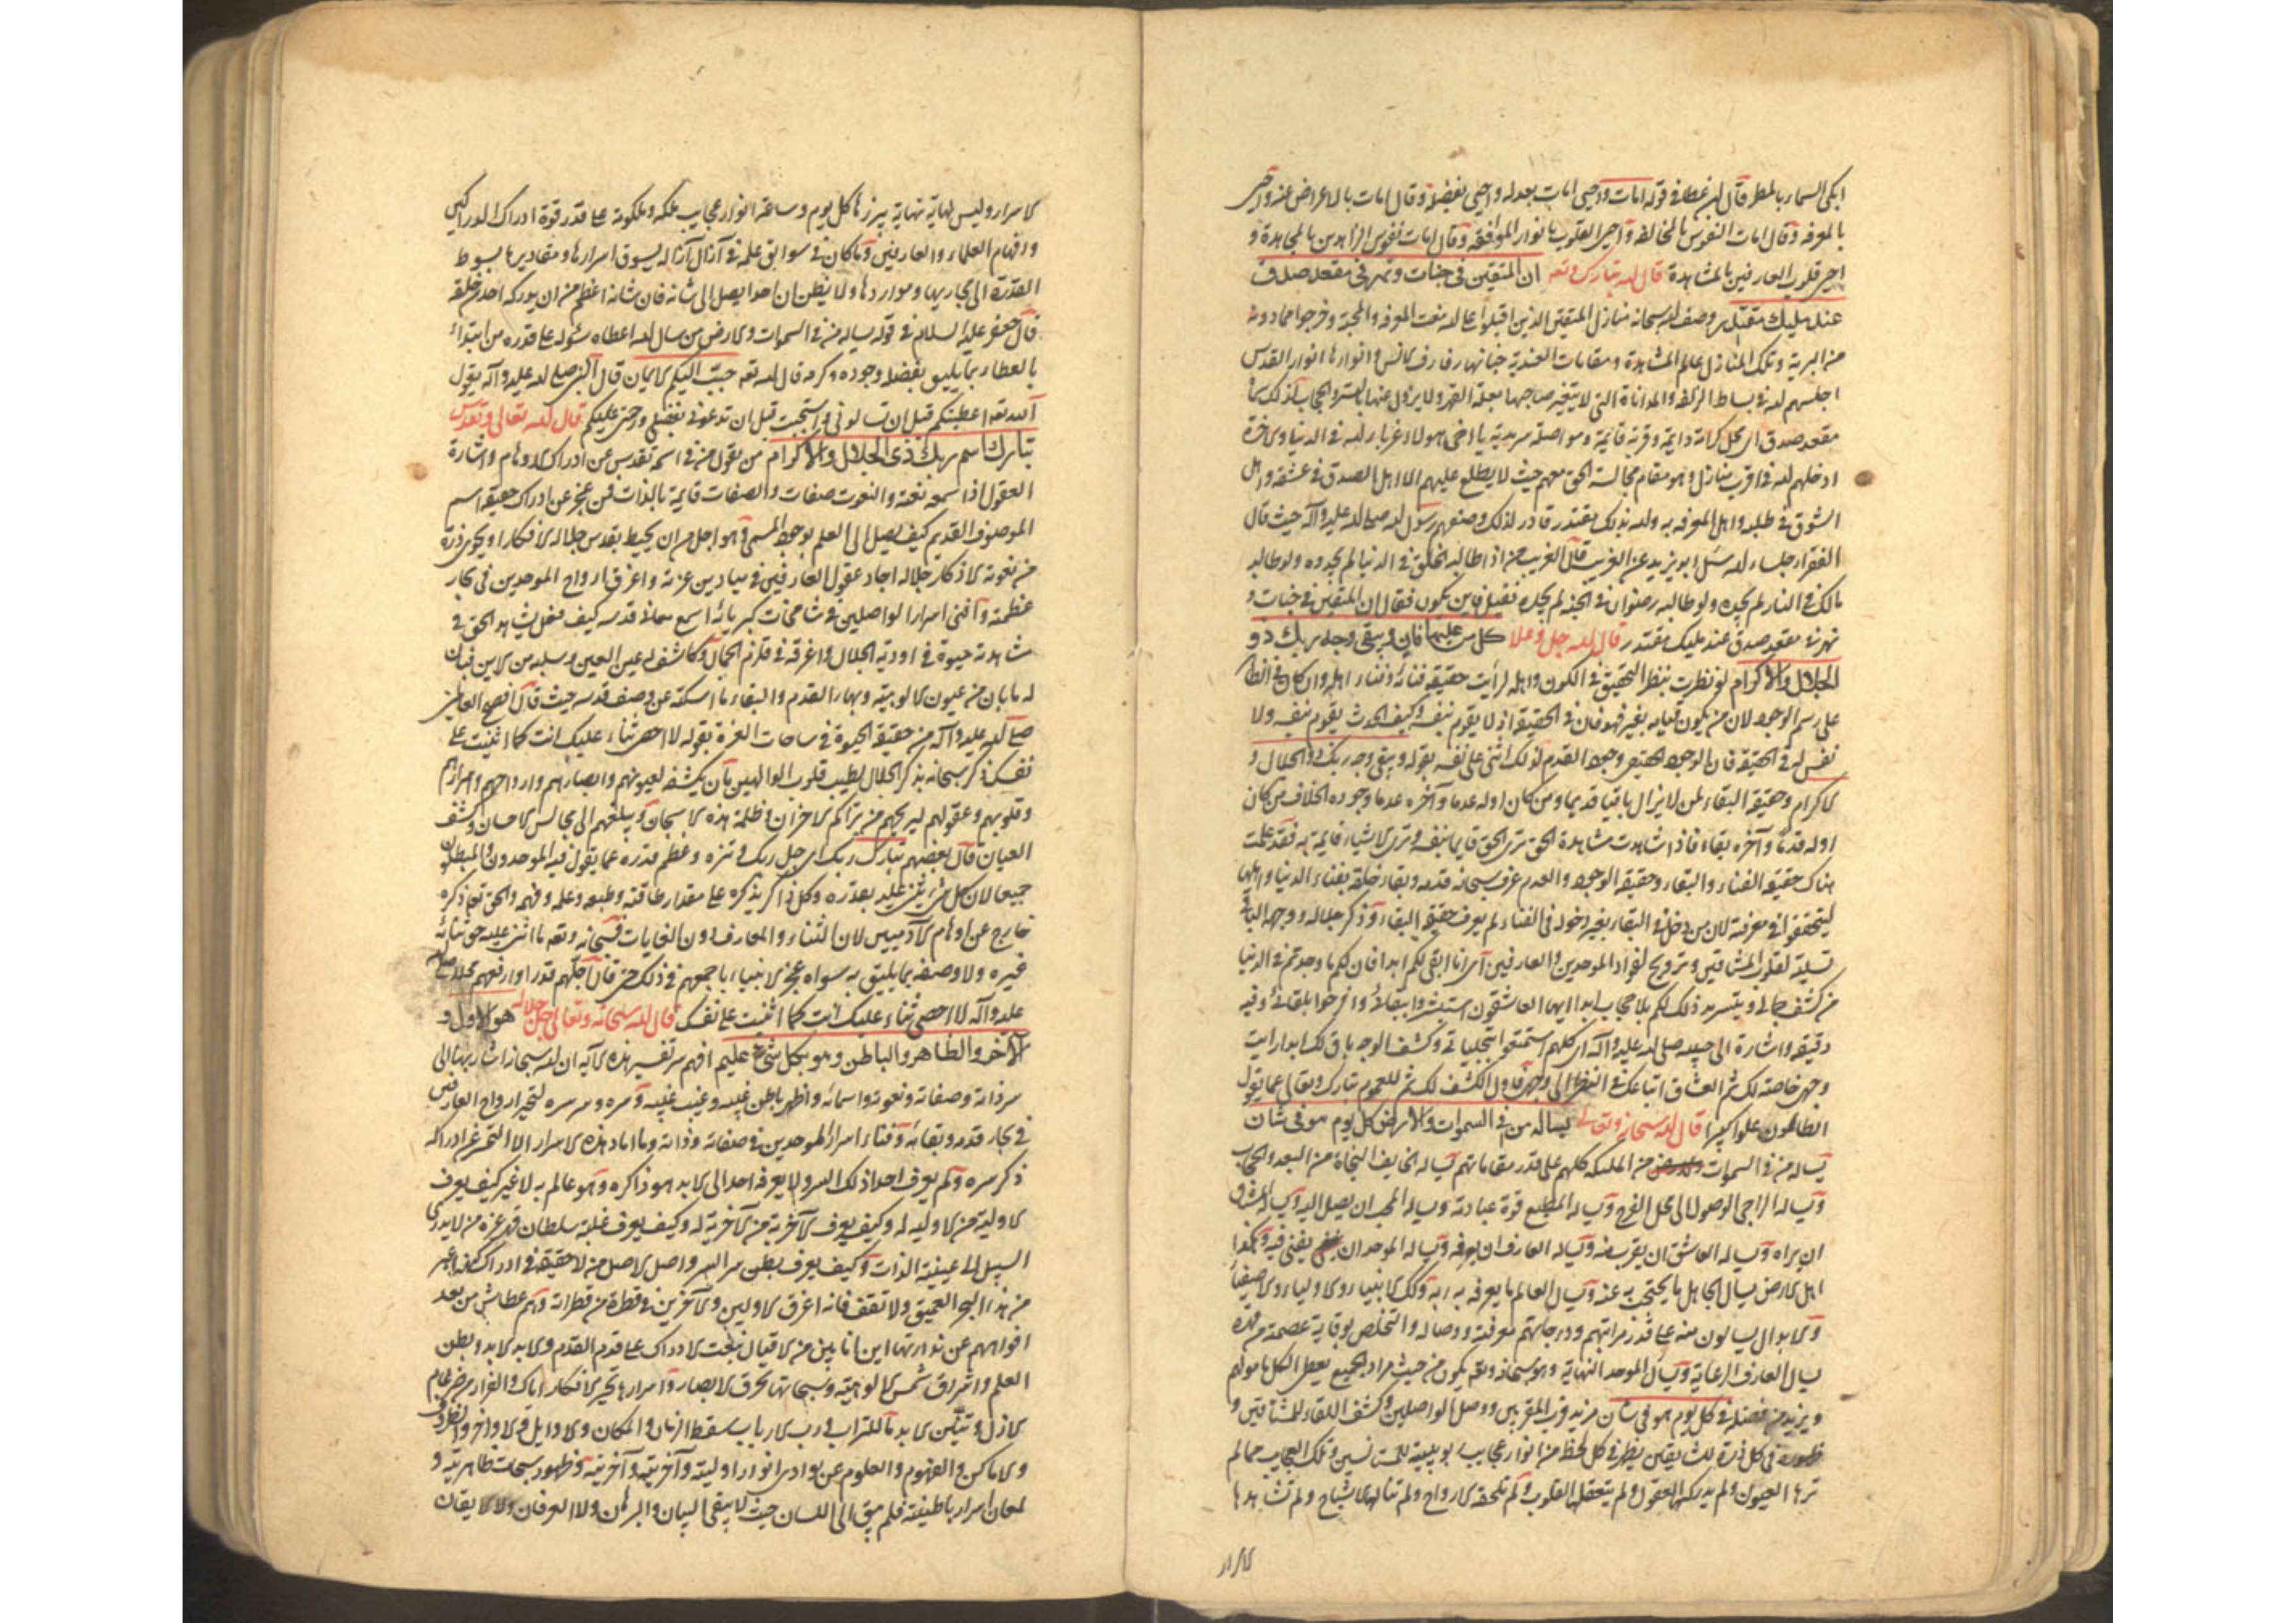 ابكى السماء بالمطر وقال ابن عطا فى قوله امات واحيى امات بعدله واحيى بفضله وقال امات بالاعراض عنه واحيى
بالمعرفه وقال امات النفوس بالمخالفه واحيى القلوب بانوار الموافقه وقال امات نفوس الزاهدين بالمجاهدة و
احيى قلوب العارفين بالمشاهدة قال الله تبارك وتعه ان المتقين فى جنات ونهر فى مقعد صدق
عند مليك مقتدر وصف الله سبحانه منازل المتقين الذين اقبلوا على الله بنعت المعرفه والمحبة وخرجوا مما دونه
من البرية وتلك المنازل عالم المشاهدة ومقامات العندية جنانها رفارف الانس وانوارها انوار القدس
اجلسهم الله فى بساط الزلفه والمداناة التى لا يتغير صاحبها بعلة القهر ولا يزول عنها بالستر والحجاب لذلك سما
مقعد صدق اى محل كرامة دايمة وقربة قائمة ومواصلة سرمدية يا اخى هولاء غرباء الله فى الدنيا والاخرة
ادخلهم الله فى اقرب منازل وهو مقام مجالسة الحق معهم حيث لا يطلع عليهم الا اهل الصدق فى عشقه واهل
الشوق فى طلبه واهل المعرفه به والله بذلك مقتدر قادر لذلك وصفهم رسول الله صلى الله عليه وآله حيث قال
الفقراء جلساء الله سئل ابو يزيد عن الغريب قال الغريب من اذا طالبه الخلق فى الدنيا لم يجدوه ولو طالبه
مالك فى النار لم يجده ولو طالبه رضوان فى الجنة لم يجده فقيل فاين يكون فقال ان المتقين فى جنات و
نهر فى مقعد صدق عند مليك مقتدر قال الله جل وعلا كل من عليها فان ويبقى وجه ربك ذو
الجلال والاكرام لو نظرت بنظر التحقيق فى الكون واهله لرأيت حقيقة فنائه وفناء اهله وان كان فى الظاهر
على رسم الوجود لان من يكون قيامه بغيره فهو فان فى الحقيقة اذ لا يقوم بنفسه وكيف الحدث يقوم بنفسه ولا
نفس له فى الحقيقة فان الوجود الحقيقى وجود القدم لذلك اثنى على نفسه بقوله ويبقى وجه ربك ذو الجلال و
الاكرام وحقيقة البقاء لمن لا يزال باقيا قديما ومن كان اوله عدما وآخره عدما وجوده الخلاف من كان
اوله قدما وآخره بقاء فاذا شاهدت مشاهدة الحق ترى الحق قايما بنفسه وترى الاشياء قايمة به فقد علمت
هناك حقيقة الفناء والبقاء وحقيقة الوجود والعدم عرف سبحانه قدمه وبقاء خلقه بفناء الدنيا واهلها
ليتحققوا فى معرفته لان من دخل فى البقاء بغير دخوله فى الفناء لم يعرف حقيقة البقاء وذكر جلاله ووجهه الباقى
تسلية لقلوب المشتاقين وترويح لفواد الموحدين والعارفين اى انا ابقى لكم ابدا فان لكم ما وجدتم فى الدنيا
من كشف جمالى ويتسرمد ذلك لكم بلا حجاب ابدا ايها العاشقون استبشروا ببقائى وافرحوا بلقائى وفيه
دقيقه واشارة الى حبيبه صلى الله عليه وآله اى كلهم استمتعوا بتجلياتى وكشف الوجه باق لك ابدا رايت
وجهى خاصة لك ثم العشاق اتباعك فى النظر الى وجهى فاول الكشف لك ثم للعموم تبارك وتعالى عما يقول
الظالمون علوا كبيرا قال الله سبحانه وتعالى يساله من فى السموات والارض كل يوم هو فى شان
يساله من فى السموات من الملئكه كلهم على قدر مقاماتهم يساله الخايف النجاة من البعد والحجاب
ويساله الراجى الوصول الى محل الفرح ويساله المطيع قوة عبادته ويساله المحب ان يصل اليه ويساله المشتاق
ان يراه ويساله العاشق ان يقرب منه ويساله العارف ان يعرفه ويساله الموحد ان يفنى فيه وهكذا
اهل الارض يسال الجاهل ما يحتجب به عنه ويسال العالم ما يعرفه به وكذلك الانبياء والاولياء والاصفياء
والابدال يسالون منه على قدر مراتبهم ودرجاتهم معرفته ووصاله والتخلص بوقاية عصمته من قهره
يسال العارف الرعاية ويسال الموحد النهاية وهو سبحانه وتعه يكون من حيث مراد الجميع يعطى الكل مامولهم
ويزيد من فضله فى كل يوم هو فى شان مزيد قرب المقربين ووصل الواصلين وكشف اللقاء للمشتاقين و
ظهوره فى كل ذرة للشايقين يظهر فى كل لحظة من انوار عجايب ربوبيته للمستانسين وتلك العجايب مما لم
ترها العيون ولم يدركها العقول ولم يتعقلها القلوب ولم تلحقه الارواح ولم تنالها الاشباح ولم تشاهدها
الاسرار
الاسرار وليس لها نهاية يبرزها كل يوم وساعة انوار عجايب ملكه وملكوته على قدر قوة ادراك المدراكين
وافهام العلماء والعارفين وما كان فى سوابق علمه فى آزال آزاله ليسوق اسرارها ومقاديرها بسوط
القدرة الى مجاريها ومواردها ولا يظن ان احدا يصل الى شانه فان شانه اعظم من ان يدركه احد من خلقه
قال جعفر عليه السلام فى قوله يساله من فى السموات والارض من سال الله اعطاه سئوله على قدره من ابتدائه
بالعطاء بما يليق بفضله وجوده وكرمه قال الله تعه حبب اليكم الايمان قال النبى صلى الله عليه وآله يقول
الله تعه اعطيتكم قبل ان تسالونى واستجبت قبل ان تدعونى بفضلى ورحمتى عليكم قال الله تعالى وتقدس
تبارك اسم ربك ذى الجلال والاكرام من يقول من فى اسمه تقدس عن ادراك الاوهام واشارة
العقول اذا اسمه نعته والنعوت صفات والصفات قايمة بالذات فمن عجز عن ادراك حقيقة اسم
الموصوف القديم كيف يصل الى العلم بوجود المسمى هو اجل من ان يحيط بقدس جلاله الافكار او يحوى ذرة
من نعوته الاذكار جلاله اباد عقول العارفين فى ميادين عزته واغرق ارواح الموحدين فى بحار
عظمته وافنى اسرار الواصلين فى شامخات كبريائه اسمع سمات قدسه كيف فعل بشاهد الحق فى
مشاهدته حيوة فى اودية الجلال واغرقه فى قلزم الجمال وكاشف له عين العين وسلبه من الاين فبان
له ما بان من عيون الالوهية وبهاء القدم والبقاء ما اسكته عن وصف قدسه حيث قال افصح العالمين
صلى الله عليه وآله من حقيقة الحيوة فى ساحات العزة بقوله لا احصى ثناء عليك انت كما اثنيت على
نفسك ذكر سبحانه بذكر الجلال لطيب قلوب الوالهين بان يكشف لعيونهم وابصارهم وارواحهم واسرارهم
وقلوبهم وعقولهم ليريحهم من تراكم الاحزان وظلمة هذه الاسجان ويبلغهم الى مجالس الاحسان وكشف
العيان قال بعضهم تبارك ربك اى جل ربك وتنزه وعظم قدره عما يقول فيه الموحدون والمبطلون
جميعا لان كل شىء يثنى عليه بقدره وكل ذاكر يذكره على مقدار طاقته وطبعه وعلمه وفهمه والحق تعه ذكره
خارج عن اوهام الآدميين لان الثناء والمعارف دون الغايات فسبحانه وتعه ما اثنى عليه حق ثنائه
غيره ولا وصفه بما يليق به سواه عجز الانبياء باجمعهم فى ذلك حتى قال اجلهم قدرا وارفعهم محلا صلى الله
عليه وآله لا احصى ثناء عليك انت كما اثنيت على نفسك قال الله سبحانه وتعالى جل جلاله هو الاول و
الآخر والظاهر والباطن وهو بكل شئ عليم افهم سر تفسير هذه الآية ان الله سبحانه اشار بها الى
سر ذاته وصفاته ونعوته واسمائه واظهر باطن غيبه وغيب غيبه وسره وسر سره لتحير ارواح العارفين
فى بحار قدمه وبقائه وفناء اسرار الموحدين فى صفاته وذاته وما افاد هذه الاسرار الا التحير عن ادراك
ذكر سره ولم يعرف احد ذلك السر ولا يعرفه احد الى الابد هو ذاكره وهو عالم به لا غير كيف يعرف
الاولية من لا اولية له وكيف يعرف الآخرية من لا آخرية له وكيف يعرف غلبة سلطان قهر عزه من لا يدرى
السبيل الى عينية الذات وكيف يعرف بطن سر السر واصل الاصل من لا حقيقة فى ادراك كنهه اعبر
من هذا البحر العميق ولا تقف فانه اغرق الاولين والآخرين فى قطرة من قطراته وهم عطاش من بعد
افواههم عن نداوتها اين انا بين من لا قبال بنعت الادراك على قدم القدم والابد الابد وبطن
العلم واشراق شمس الالوهية وسبحاتها تحرق الابصار واسرارها تحير الافكار اياك والفرار من ضرغام
الازل وتنين الابد ما للتراب ورب الارباب سقط الزمان والمكان والاوايل والاواخر والظروف
والاماكن والفهوم والعلوم عن بوادى انوار اوليته وآخريته وآخريته وظهور سبحات ظاهريته و
لمعان اسرار باطنيته فلم يبق الى اللسان حيث لا يبقى البيان والبرهان ولا العرفان ولا الايقان